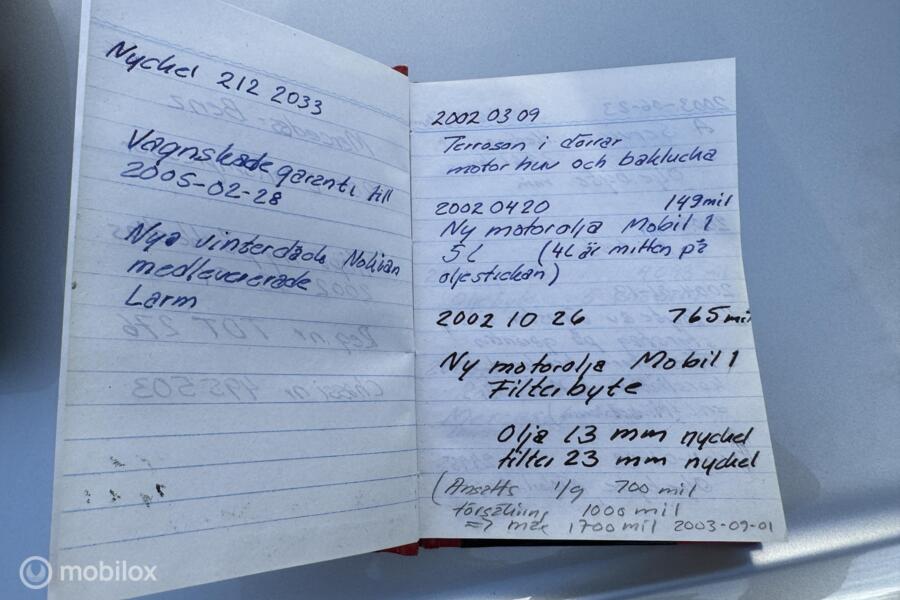 Nyckel 212 2033
Vagnskadegaranti till
2005-02-28
Nya vinterdäck Nokian
medlevererade
Larm
2002 03 09
Teroson i dörrar
motorhuv och baklucka
2002 04 20 149 mil
Ny motorolja Mobil 1
5 L (4L är mitten på
oljestickan)
2002 10 26 765 mil
Ny motorolja Mobil 1
Filterbyte
Olja 13 mm nyckel
filter 23 mm nyckel
(Ansetts 1/9 700 mil
försäkring 1000 mil
=> max 1700 mil 2003-09-01
Reg.nr TDT 276
Chassi nr 495503
mobilox